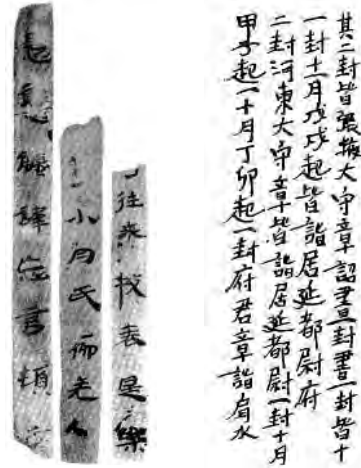 其二封皆張掖大守章詔書一封書一封皆十
一封十一月戊戌起皆詣居延都尉府
二封河東大守章皆詣居延都尉一封十月
甲子起一十月丁卯起一封府君章詣肩水
往來牧表是樂
小月氏柳羌人
忘言頓